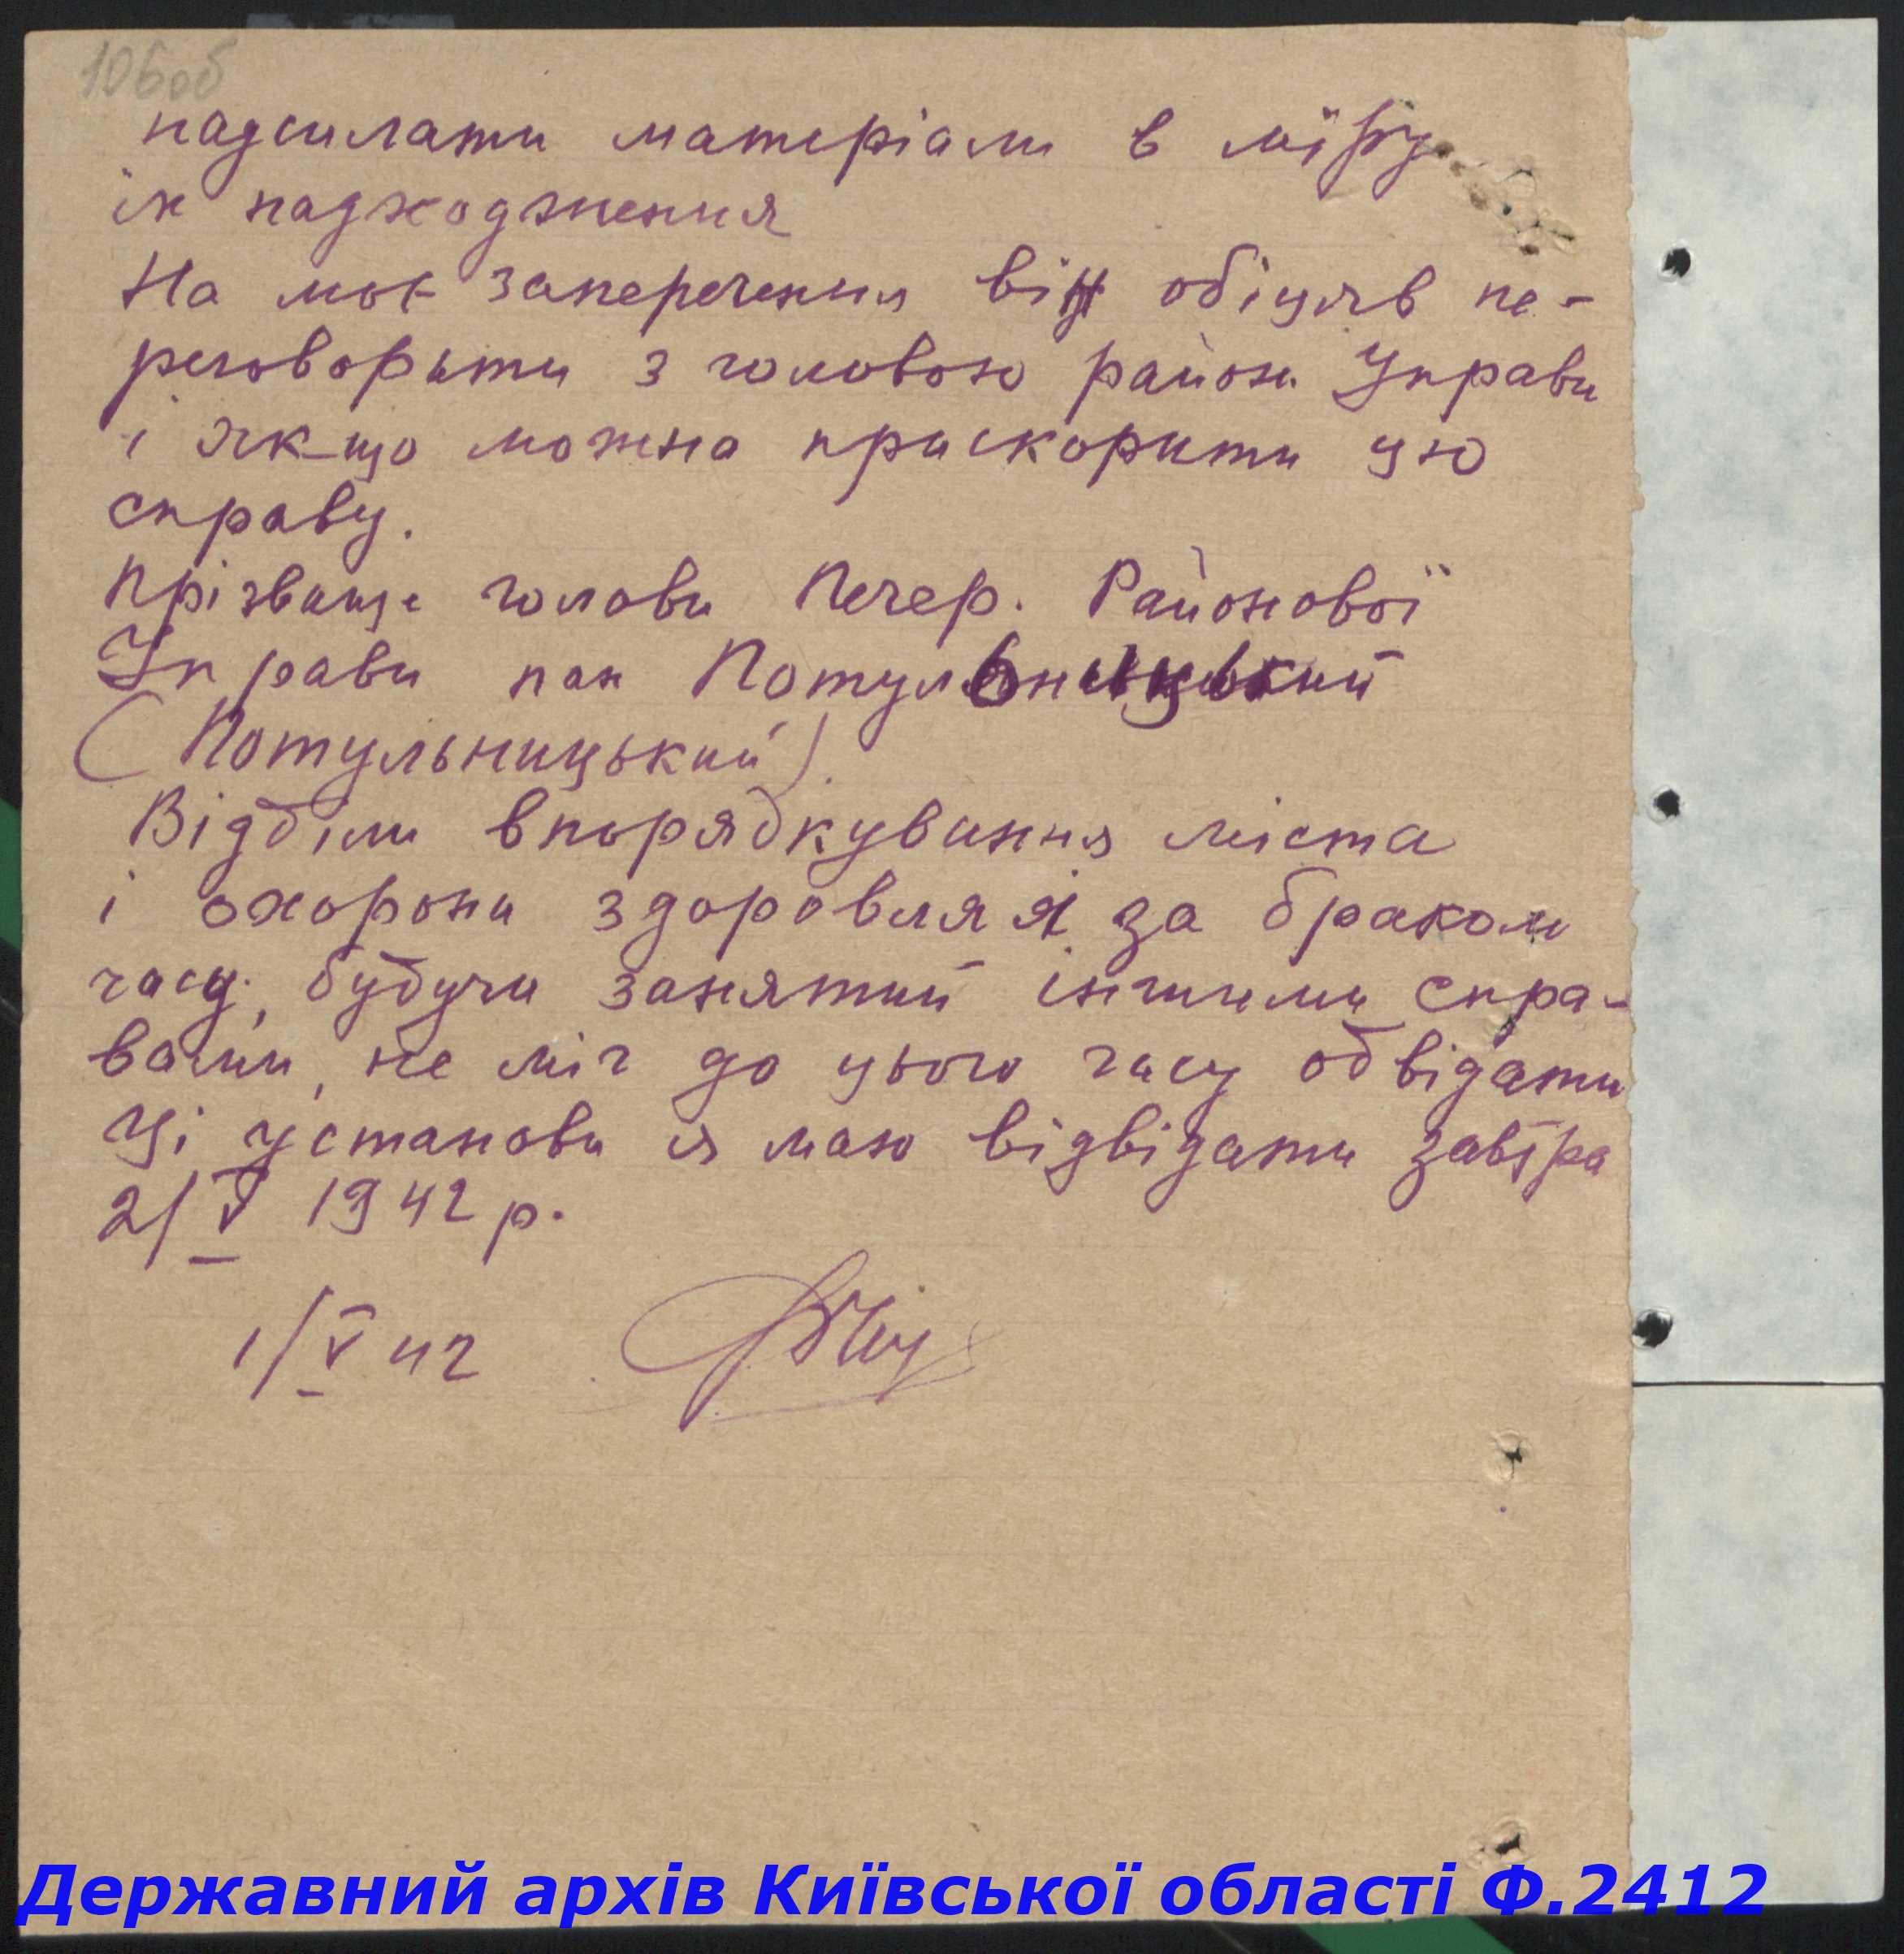 106об
надсилати матеріали в міру
їх надходження
На моє заперечення він обіцяв пе-
реговорити з головою район. Управи
і як-що можна прискорити цю
справу.
Прізвище голови Печер. Районової
Управи пан Потульницький
(Потульницький).
Відділи впорядкування міста
і охорони здоровля я за браком
часу, будучи занятий іншими спра-
вами, не міг до цього часу одвідати
Ці установи я маю відвідати завтра
2/V 1942 р.
1/V 42
Державний архів Київської області Ф.2412